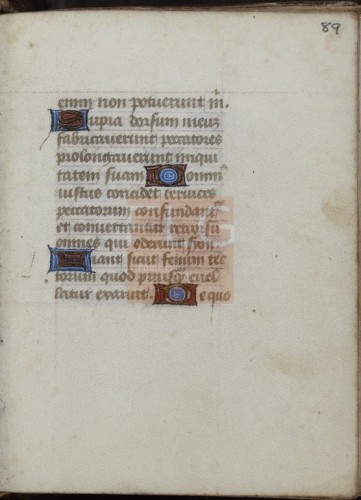 89
enim non potuerunt m̄.
Supra dorsum meuz
fabricaverunt peccatores
prolongaverunt iniqui
tatem suam Domin⁹
iustus concidet cervices
peccatorum confundant᷑
et convertantur retrorsu
omnes qui oderunt syon.
Fiant sicut fenum tec
torum quod priusq̄ evel
latur exaruit. De quo